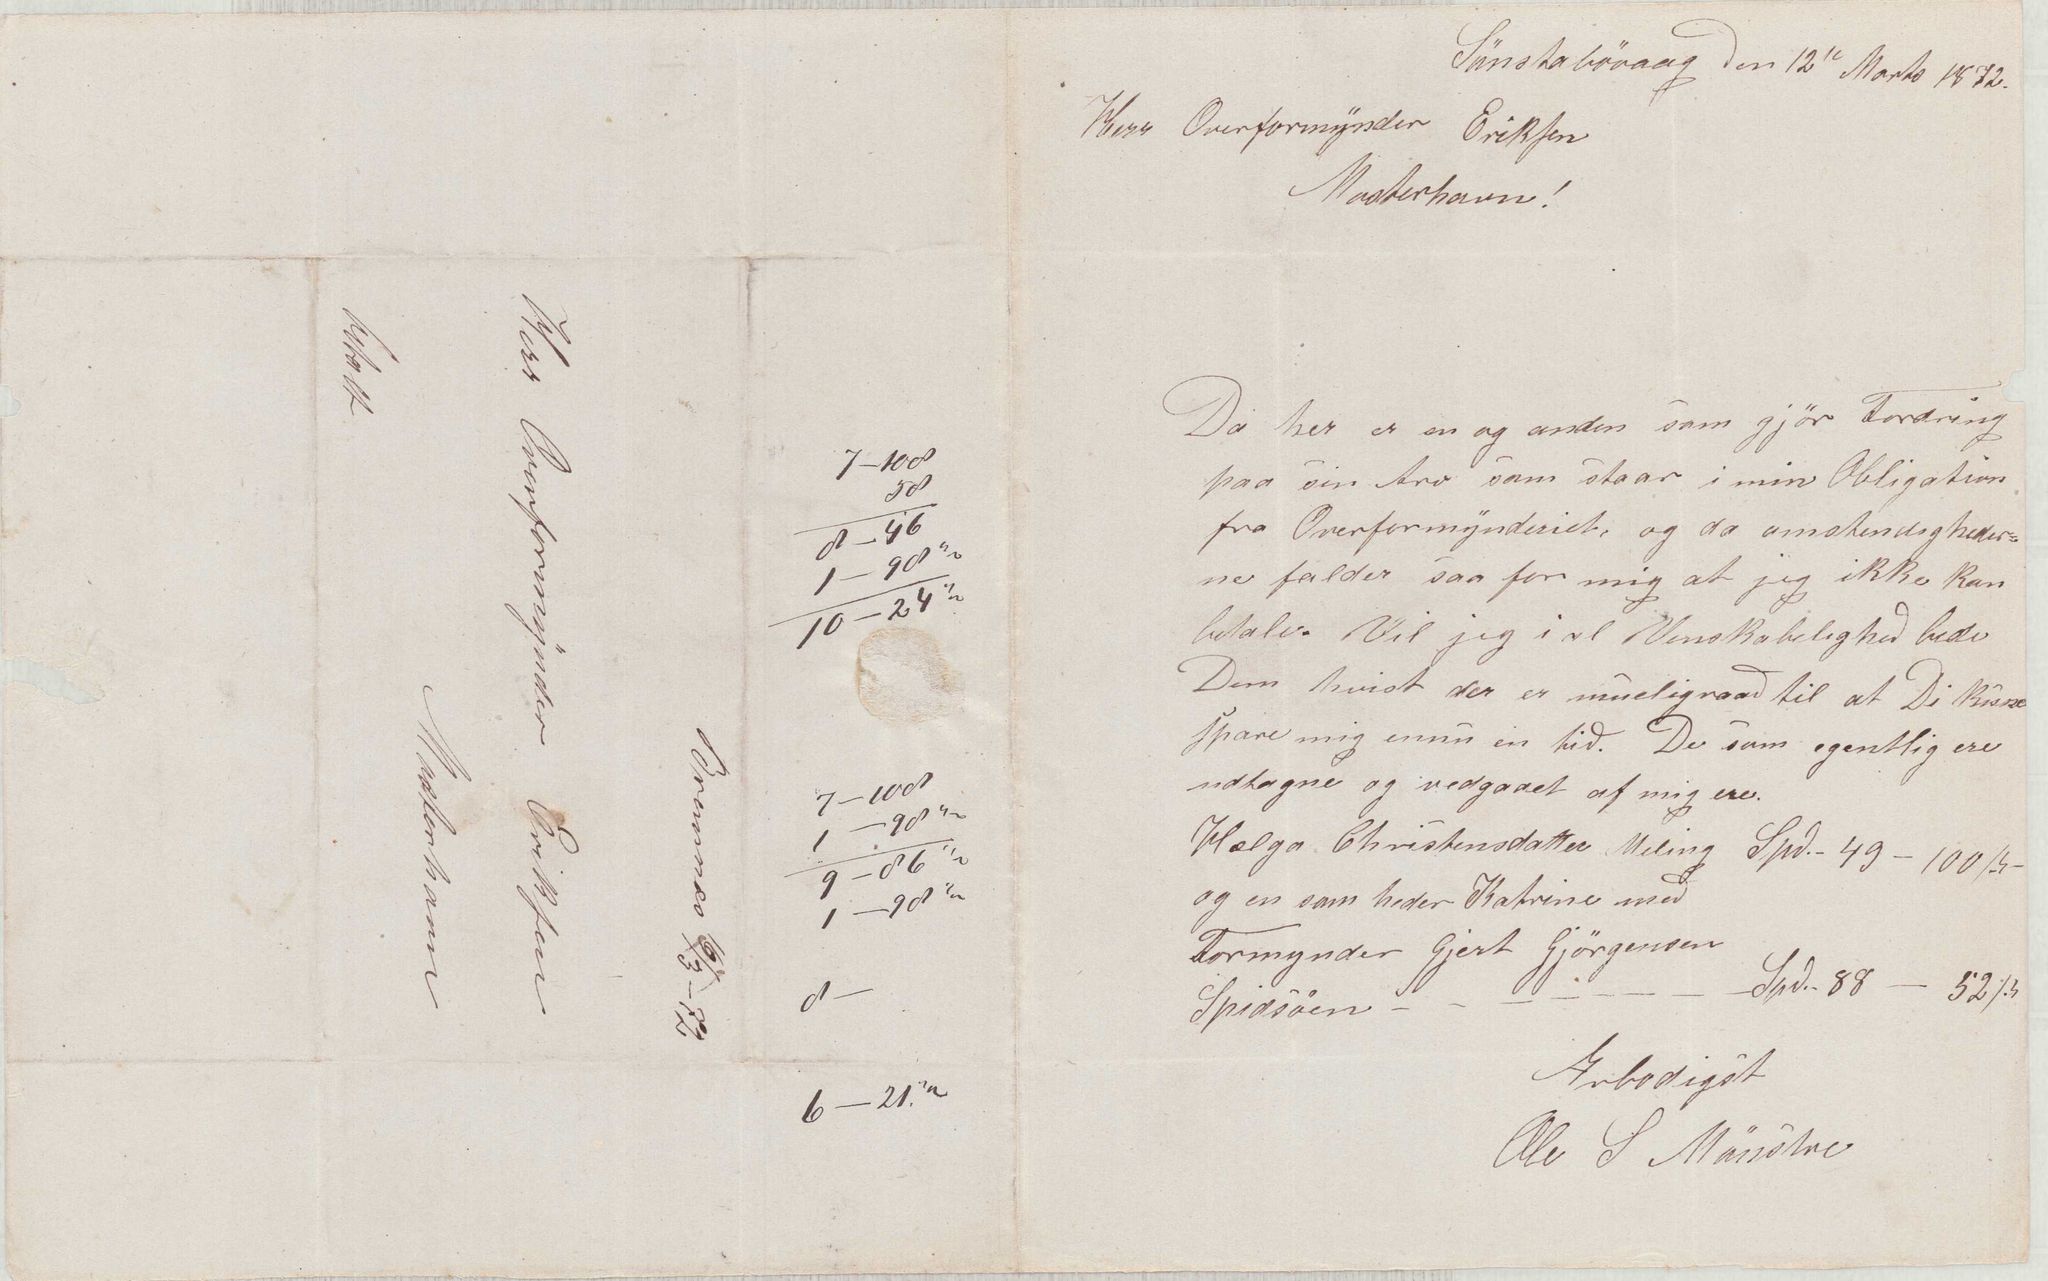 Sünstabövaag den 12te Marts 1872.
Herr Overformÿnder Eriksen
Mosterhavn!
Da her er en og anden som gjör Fordring
paa sin Arv som staar i min Obligation
fra Overformÿnderiet, og da omstendigheder=
ne falder saa for mig at jeg ikke kan
betale. Vil jeg i al Venskabelighed bede
Dem hvist der er mueligraad til at Di kune
spare mig ennu en tid. De som egentlig ere
udtagne og vedgaaet af mig ere.
Helga Christensdatter Meling Spd. - 49 - 100 ß -
og en som heder Katrine med
Formynder Gjert Gjörgensen
Spidsöen - - - - - - - - Spd. - 88 - 52 ß
Ærbodigst
Ole S Mönstre
7 - 108
58
8 - 46
1 - 98
10 - 24
7 - 108
1 - 98
9 - 86
1 - 98
8 -
6 - 21.
Bremnes 16/3 - 72
Herr Overformÿnder Eriksen
Mosterhavn
Betalt